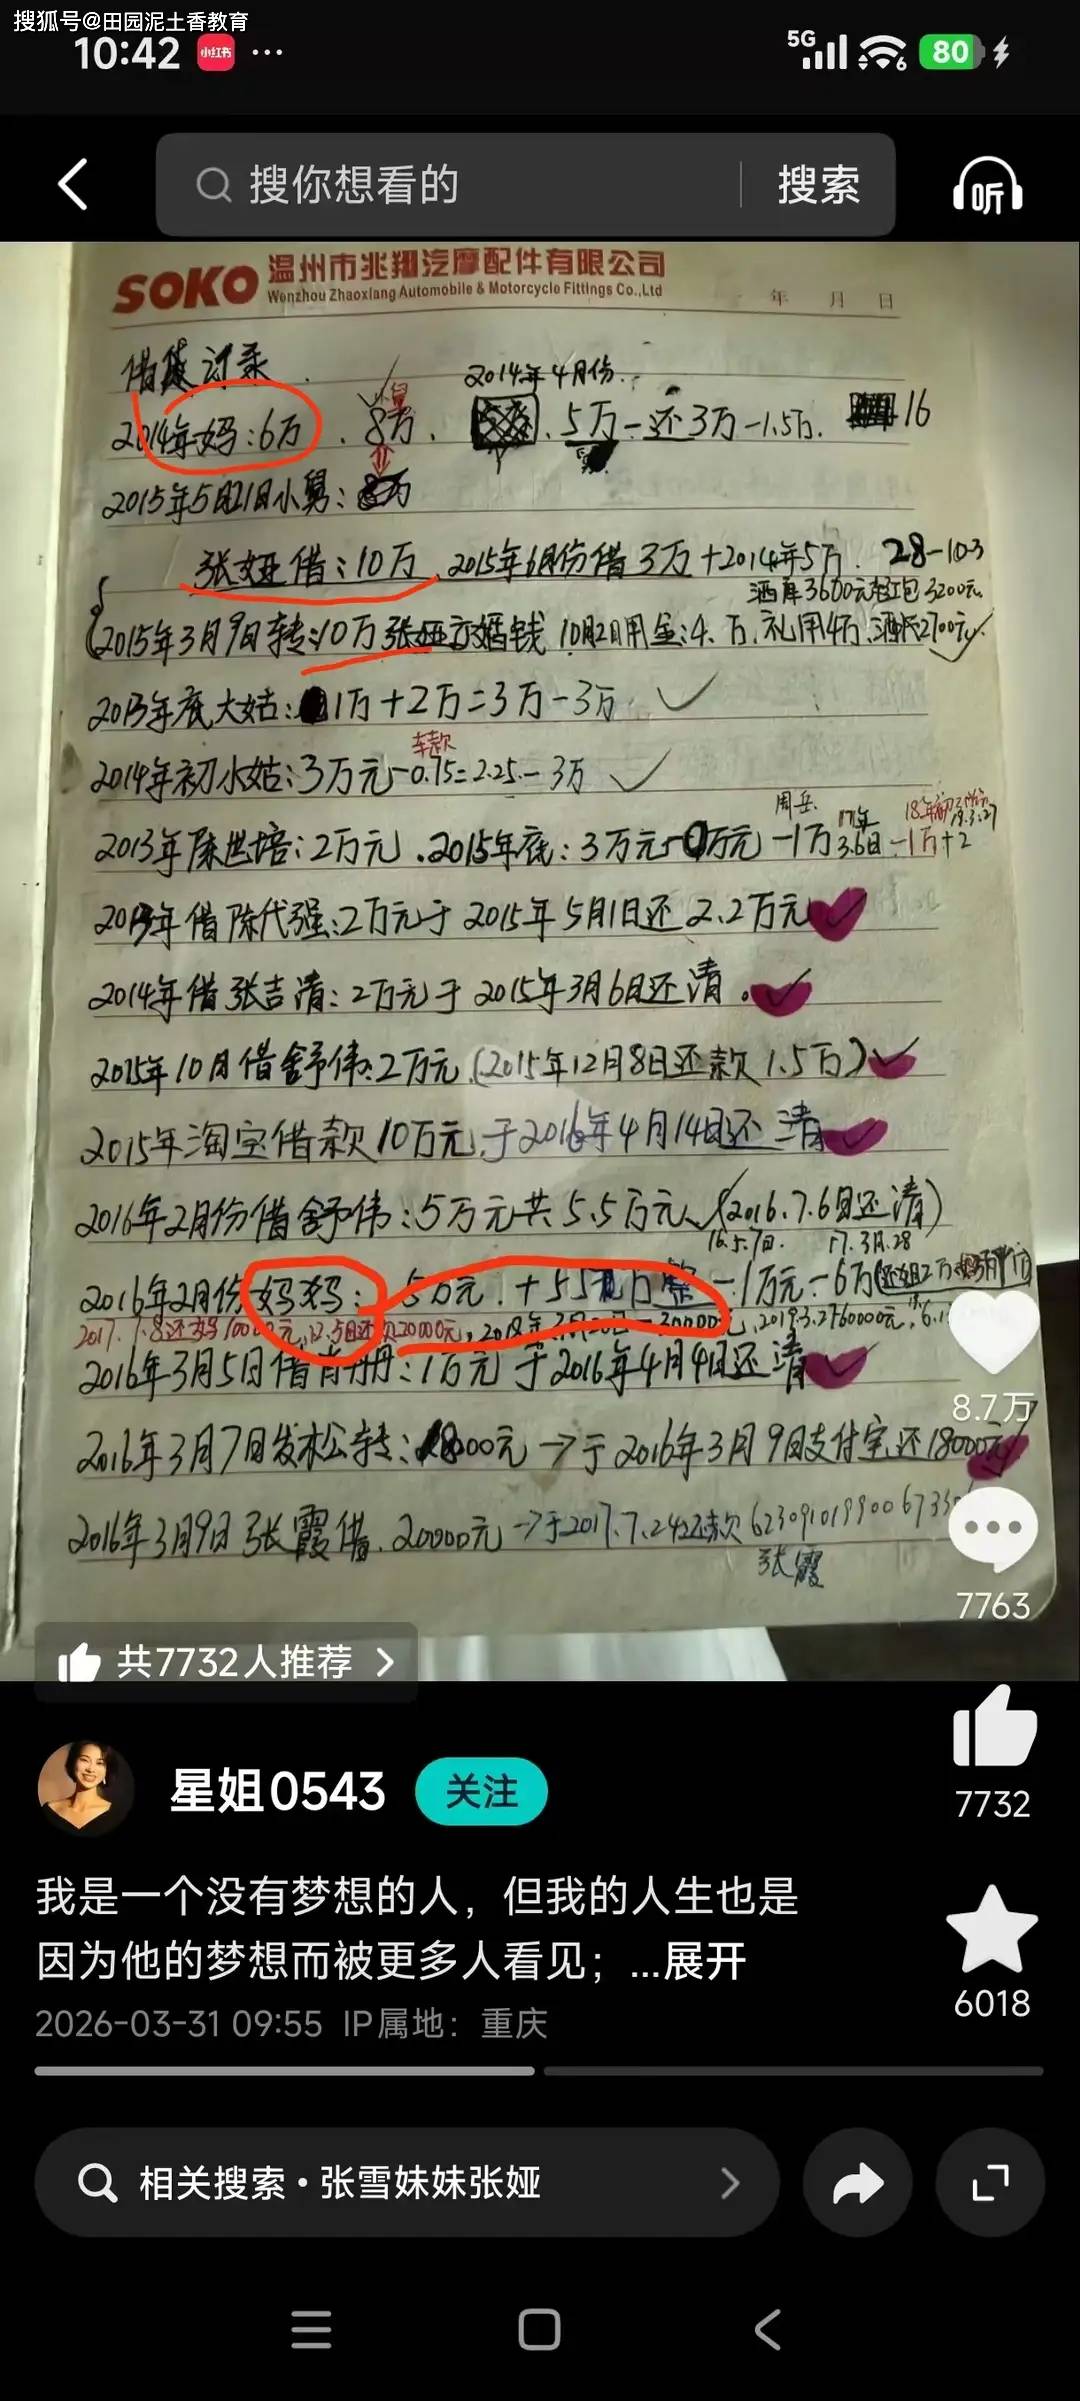 搜狐号@田园泥土香教育
10:42 小红书 ··· 5G 6 80
搜你想看的 搜索 听
SOKO 温州市兆翔汽摩配件有限公司
Wenzhou Zhaoxiang Automobile & Motorcycle Fittings Co.,Ltd
年 月 日
借 记录
2014年4月份
2014年妈:6万、8万、5万-还3万-1.5万. 16
2015年5月21日小舅:
张娅借:10万 2015年6月份借3万+2014年5万. 28-10.3
酒席3600元 红包3200元
2015年3月9日转:10万张娅 婚钱 10月2日用金:4.万、礼用4万、
2013年底大姑:1万+2万=3万-3万
车款
2014年初小姑:3万元-0.75=2.25-3万
2013年陈世培:2万元、2015年底:3万元 万元-1万 3.6日-1万+2
借陈代强:2万元于2015年5月1日还2.2万元
2014年借张吉清:2万元于2015年3月6日还清.
2015年10月借舒伟:2万元(2015年12月8日还款1.5万)
2015年淘宝借款10万元于2016年4月14日还清
2016年2月份借舒伟:5万元共5.5万元(2016.7.6日还清)
16.5.7日. 17.3月.28
2016年2月份妈妈: 5万元. -1万元-6万
2017.7.8还 10000元, 20000元, 30000元,
2016年3月5日借肖册:1万元于2016年4月4日还清
2016年3月7日发松转: 8000元→于2016年3月9日支付宝还18000元
2016年3月9日张霞借. 20000元→于2017.7.24还款
张霞
8.7万
7763
共7732人推荐 >
7732
星姐0543 关注
我是一个没有梦想的人，但我的人生也是
因为他的梦想而被更多人看见；...展开
6018
2026-03-31 09:55 IP属地：重庆
相关搜索·张雪妹妹张娅